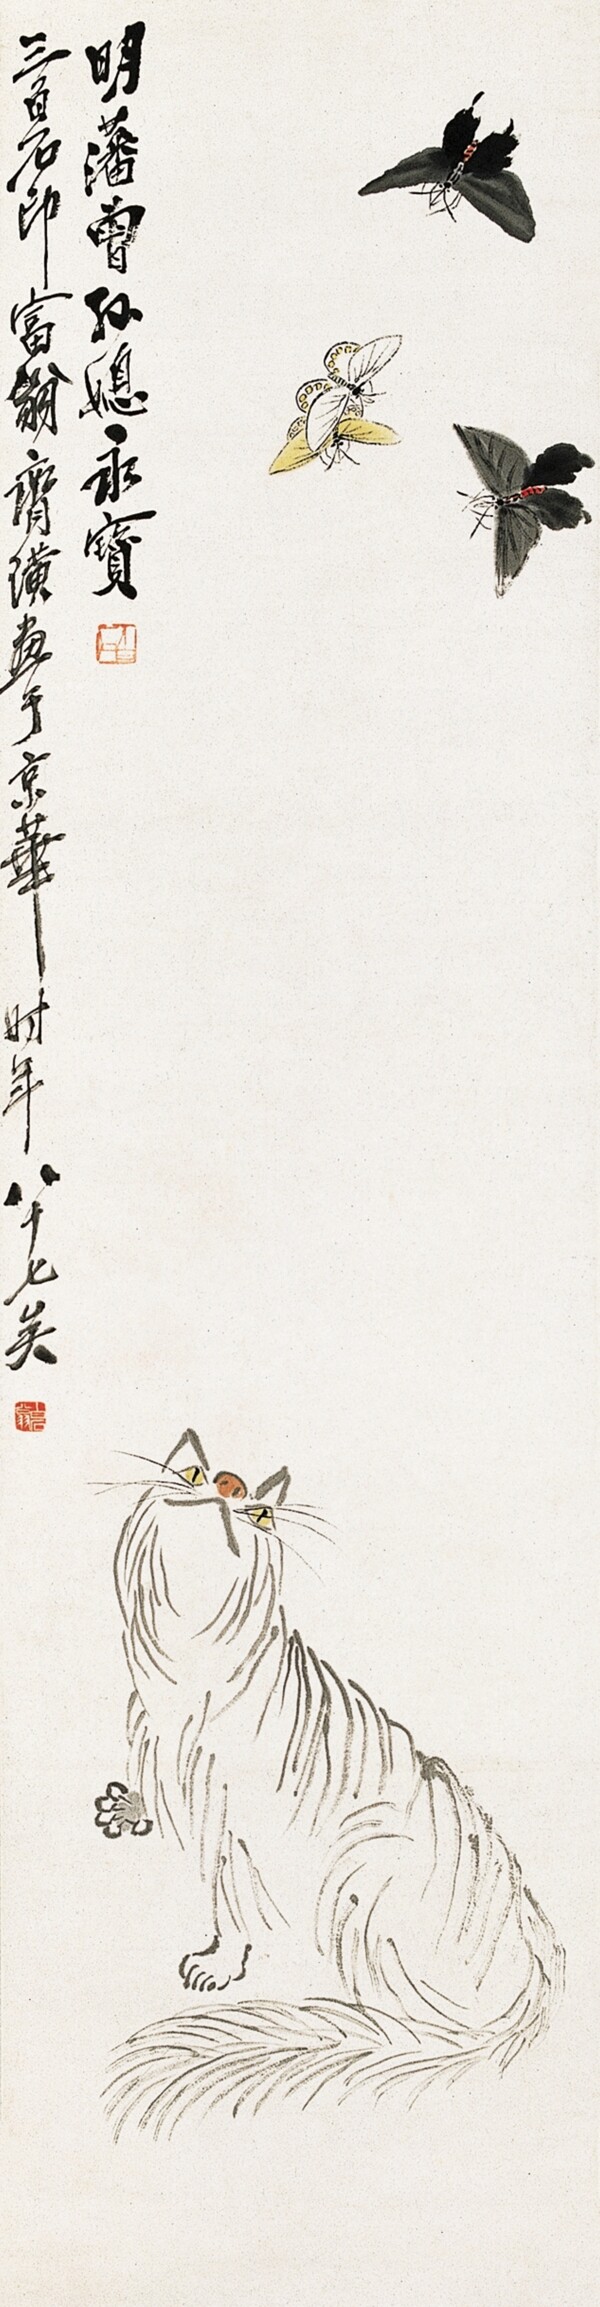 明藩曾孙媳永寶
三百石印富翁齊璜畫于京華时年八十七矣